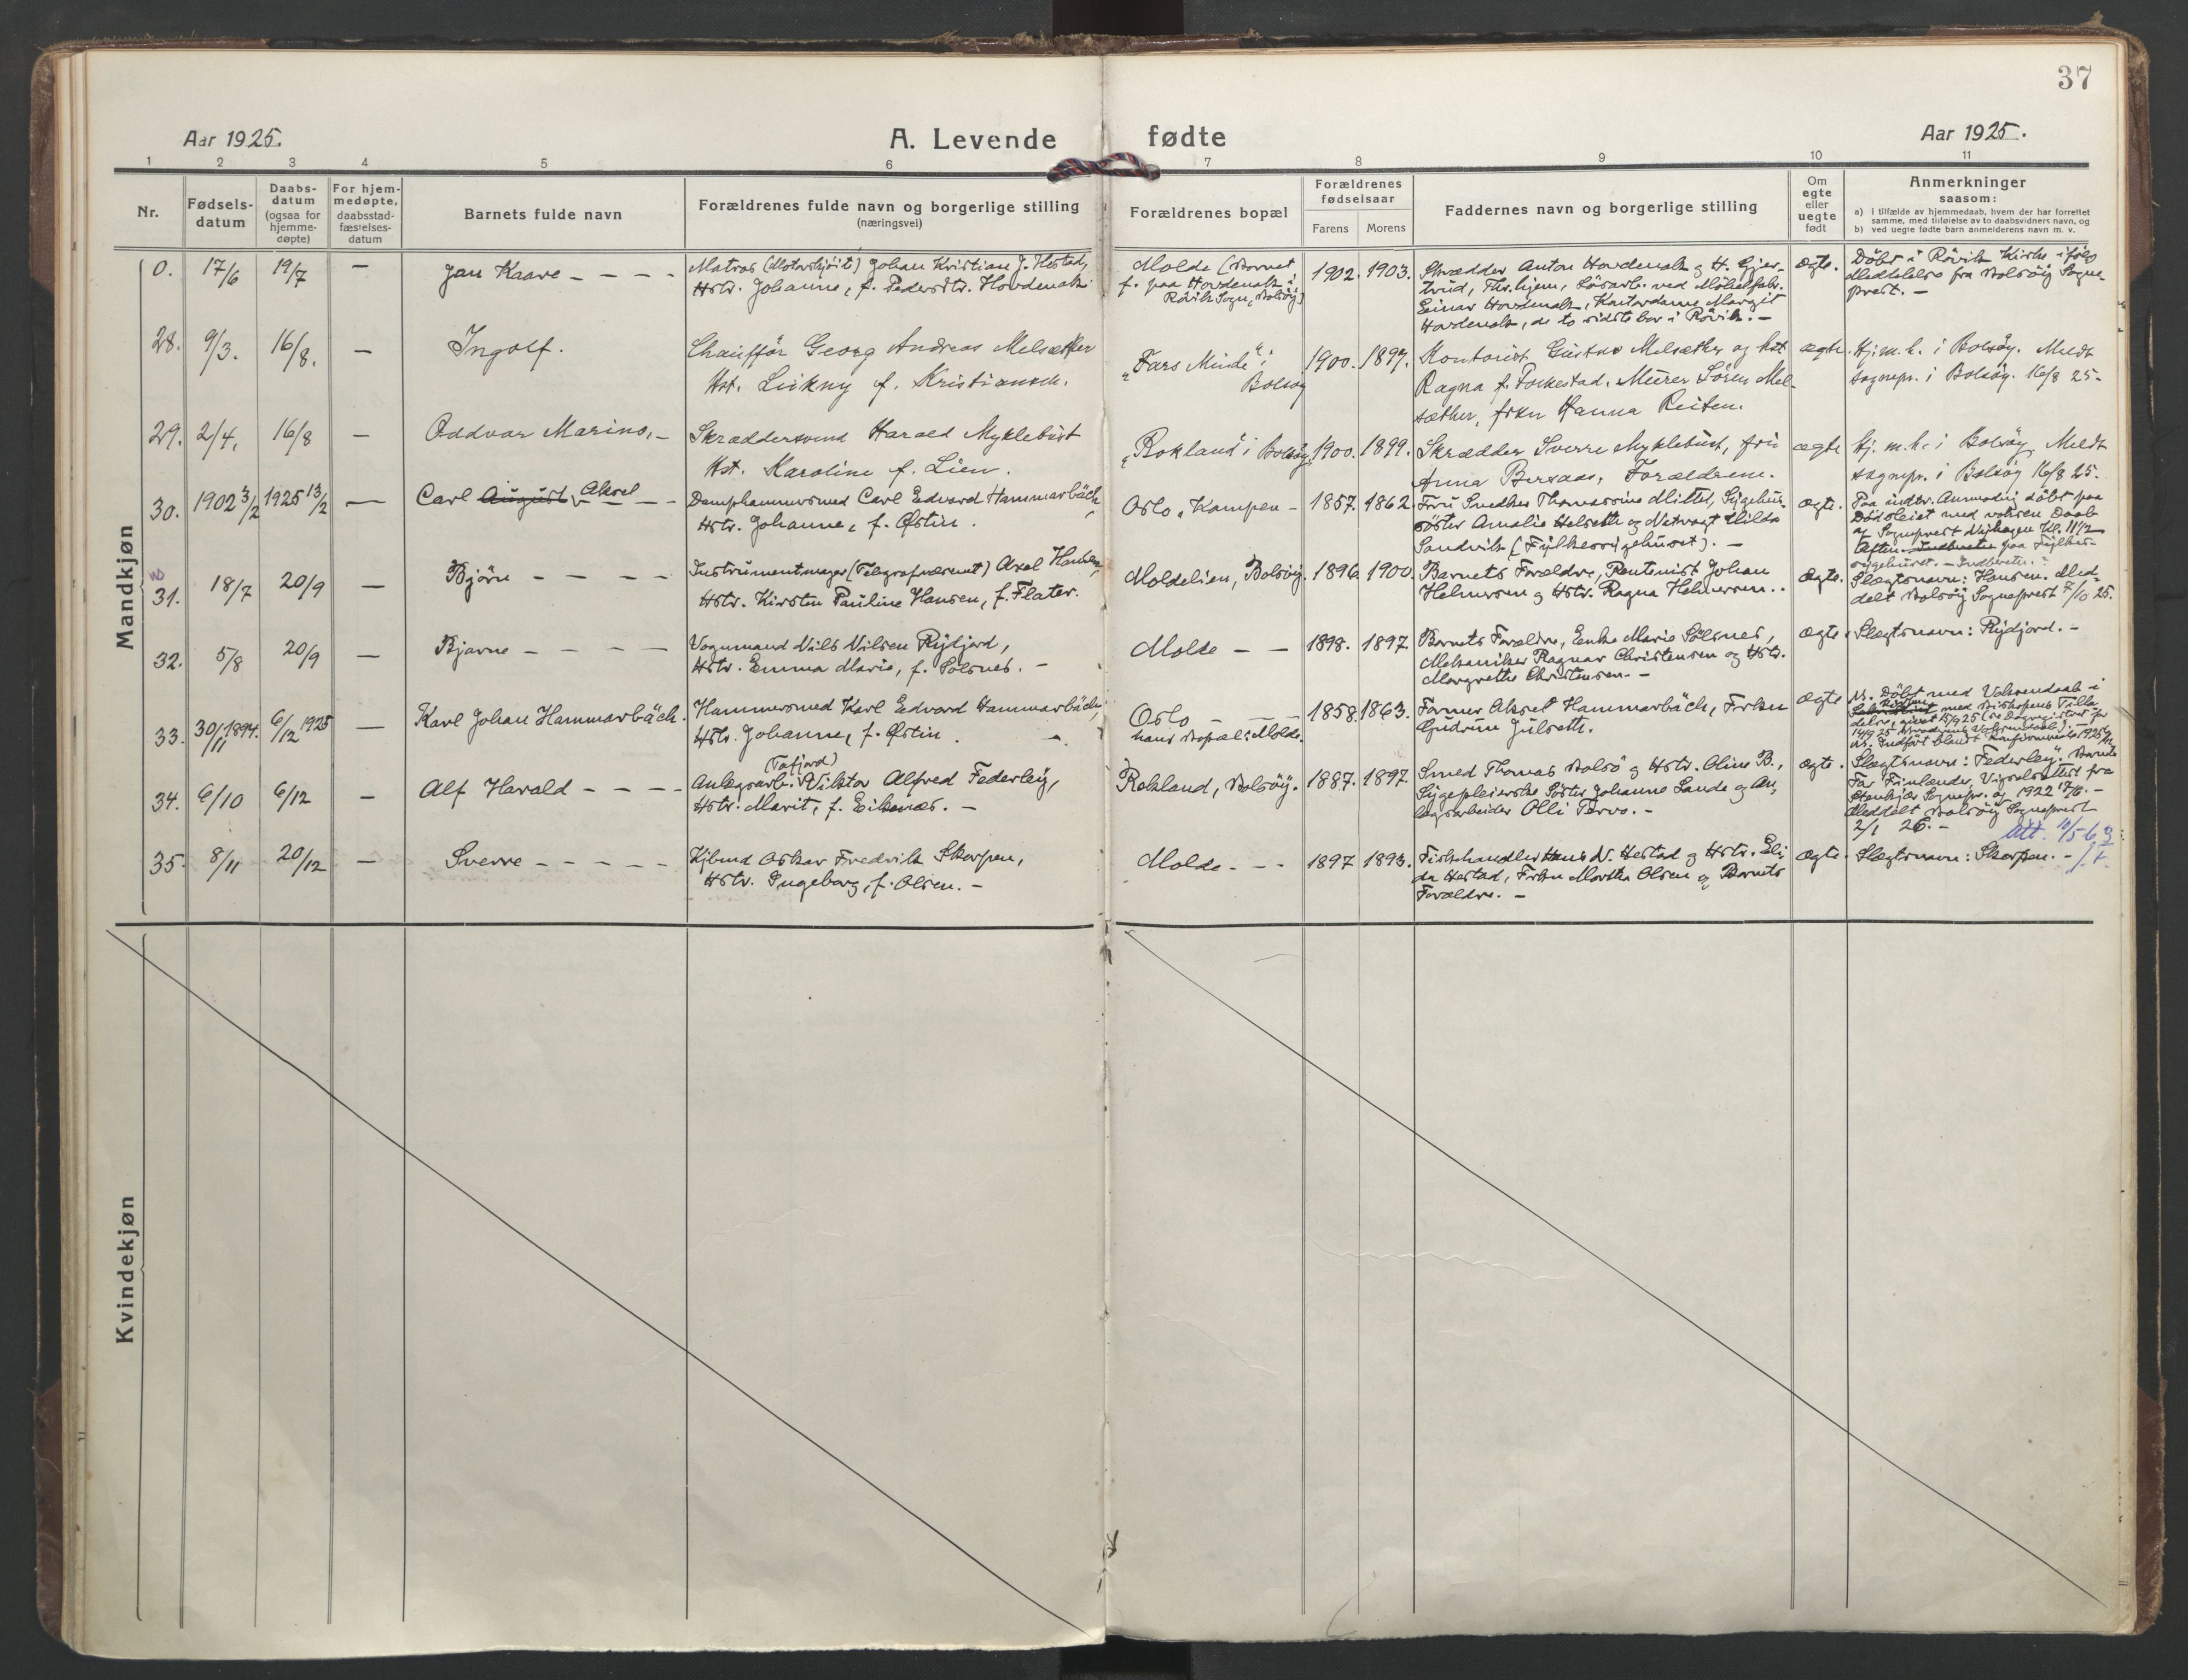 37
Aar 1925.
A. Levende fødte
Aar 1925.
1 2 3 4 5 6 7 8 9 10 11
Nr.
Fødsels-
datum
Daabs-
datum
(ogsaa for
hjemme-
døpte)
For hjem-
medøpte,
daabsstad-
fæstelses-
datum
Barnets fulde navn
Forældrenes fulde navn og borgerlige stilling
(næringsvei)
Forældrenes bopæl
Forældrenes
fødselsaar
Farens Morens
Faddernes navn og borgerlige stilling
Om
egte
eller
uegte
født
Anmerkninger
saasom:
a) i tilfælde av hjemmedaab, hvem der har forrettet
samme, med tilføielse av to daabsvidners navn, og
b) ved uegte fødte barn anmelderens navn m. v.
Mandkjøn
0. 17/6 19/7 — Jan Kaare - - - -
Matros (Motorskjöit) Johan Kristian J. Hestad,
Hstr. Johanne, f. Pedersdtr. Hovdenak.
Molde (Barnet
f. paa Hovdenak i
Rövik Sogn, Bolsöy)
1902. 1903.
Skrædder Anton Hovdenak og H. Gjer-
trud, Thr.hjem, Lösarb. ved Möbelfabr.
Einar Hovdenak, Kontordame Margit
Hovdenak, de to sidste bor i Rövik. -
ægte.
Döbt i Rövik Kirke ifölg
Meddelelse fra Bolsöy Sogne-
prest. -
28. 9/3. 16/8. — Ingolf.
Chauffför Georg Andreas Melsæther
Hst. Lukny f. Kristiansen.
"Fars Minde",
Bolsøy
1900. 1897.
Kontorist Gustav Melsæther og hst
Ragna f. Folkestad, Murer Søren Mel-
sæther, frkn Hanna Reiten.
ægte.
Hj.m.h. i Bolsøy. Meldt
sognepr. i Bolsøy. 16/8 25-
29. 2/4. 16/8 — Oddvar Marino, -
Skræddersvend Harald Myklebust
Hst. Karoline f. Lien.
"Rokland" i Bolsøy
1900. 1899.
Skrædder Sverre Myklebust, fru
Anna Bersaas, Forældrene.
ægte
Hj. m.h. i Bolsøy Meldt
sognepr. i Bolsøy 16/8 25.
30. 1902 3/2 1925 13/2 — Carl August Aksel - -
Damphammersmed Carl Edvard Hammarbäch,
Hstr. Johanne, f. Østin.
Oslo, Kampen -
1857. 1862.
Fru Snedker Thomassine Mittet, Sygehus-
söster Amalie Helseth og Natvagt Hilda
Sandvik (Fylkessygehuset). -
ægte.
Paa indtr. Anmodning döbt paa
Dödsleiet med voksen Daab
af Sogneprest Nyhagen Kl. 11 1/2
Aften. Indberetn. paa Fylkes-
sygehuset. - Indberetn. -
31. 18/7 20/9 — Bjørn - - - -
Instrumentmager (Telegrafvæsenet) Axel Hansen,
Hstr. Kirsten Pauline Hansen, f. Flater.
Moldelien, Bolsöy.
1896. 1900.
Barnets Forældre, Rentenist Johan
Helmersen og Hstr. Ragna Helmersen. .
ægte.
Slægtsnavn: Hansen. Med-
delt Bolsöy Sogneprest 7/10 25.
32. 5/8 20/9 — Bjarne - - - -
Vognmand Nils Nilsen Rydjord,
Hstr. Emma Marie, f. Solsnes. -
Molde - -
1898. 1897.
Barnets Forældre, Enke Marie Sölsnes,
Mekaniker Ragnar Christensen og Hstr.
Margrethe Christensen. -
ægte.
Slægtsnavn: Rydjord. -
33. 30/11 1894. 6/12 1925 — Karl Johan Hammarbäch.
Hammersmed Karl Edvard Hammarbäch,
Hstr. Johanne, f. Østin.
Oslo - - -
hans Bopæl: Molde.
1858. 1863.
Farmer Aksel Hammarbäch, Frøken
Gudrun Julseth.
ægte
Döbt med Voksendaab i
Kirken med Biskopens Tilla-
delse, givet 15/9 25
34. 6/10 6/12 — Alf Harald - - - -
(Tafjord)
Anlegsarb. Viktor Alfred Federley,
Hstr. Marit, f. Eikenæs. -
Rokland, Bolsöy.
1887. 1897.
Smed Thomas Bolsö og Hstr. Oline B.,
Sygepleierske Söster Johanne Sande og An-
legsarbeider Olli Tervo. -
ægte.
Slægtsnavn: Federley. Barnets
Far Finlænder, Vigselsattest fra
Stenkjær Sognepr. ag 1922 17/6. -
Meddelt Bolsöy Sogneprest
2/1 26. -
Att. 10/5-63
35. 8/11 20/12 — Sverre - - - - -
Kjbmd Oskar Fredrik Skorpen,
Hstr. Ingeborg, f. Olsen. -
Molde - - -
1897 1893.
Fiskehandler Hans N. Hestad og Hstr. Eli-
da Hestad, Frkn Martha Olsen og Barnets
Forældre. -
ægte.
Slægtsnavn: Skorpen. -
Kvindekjøn